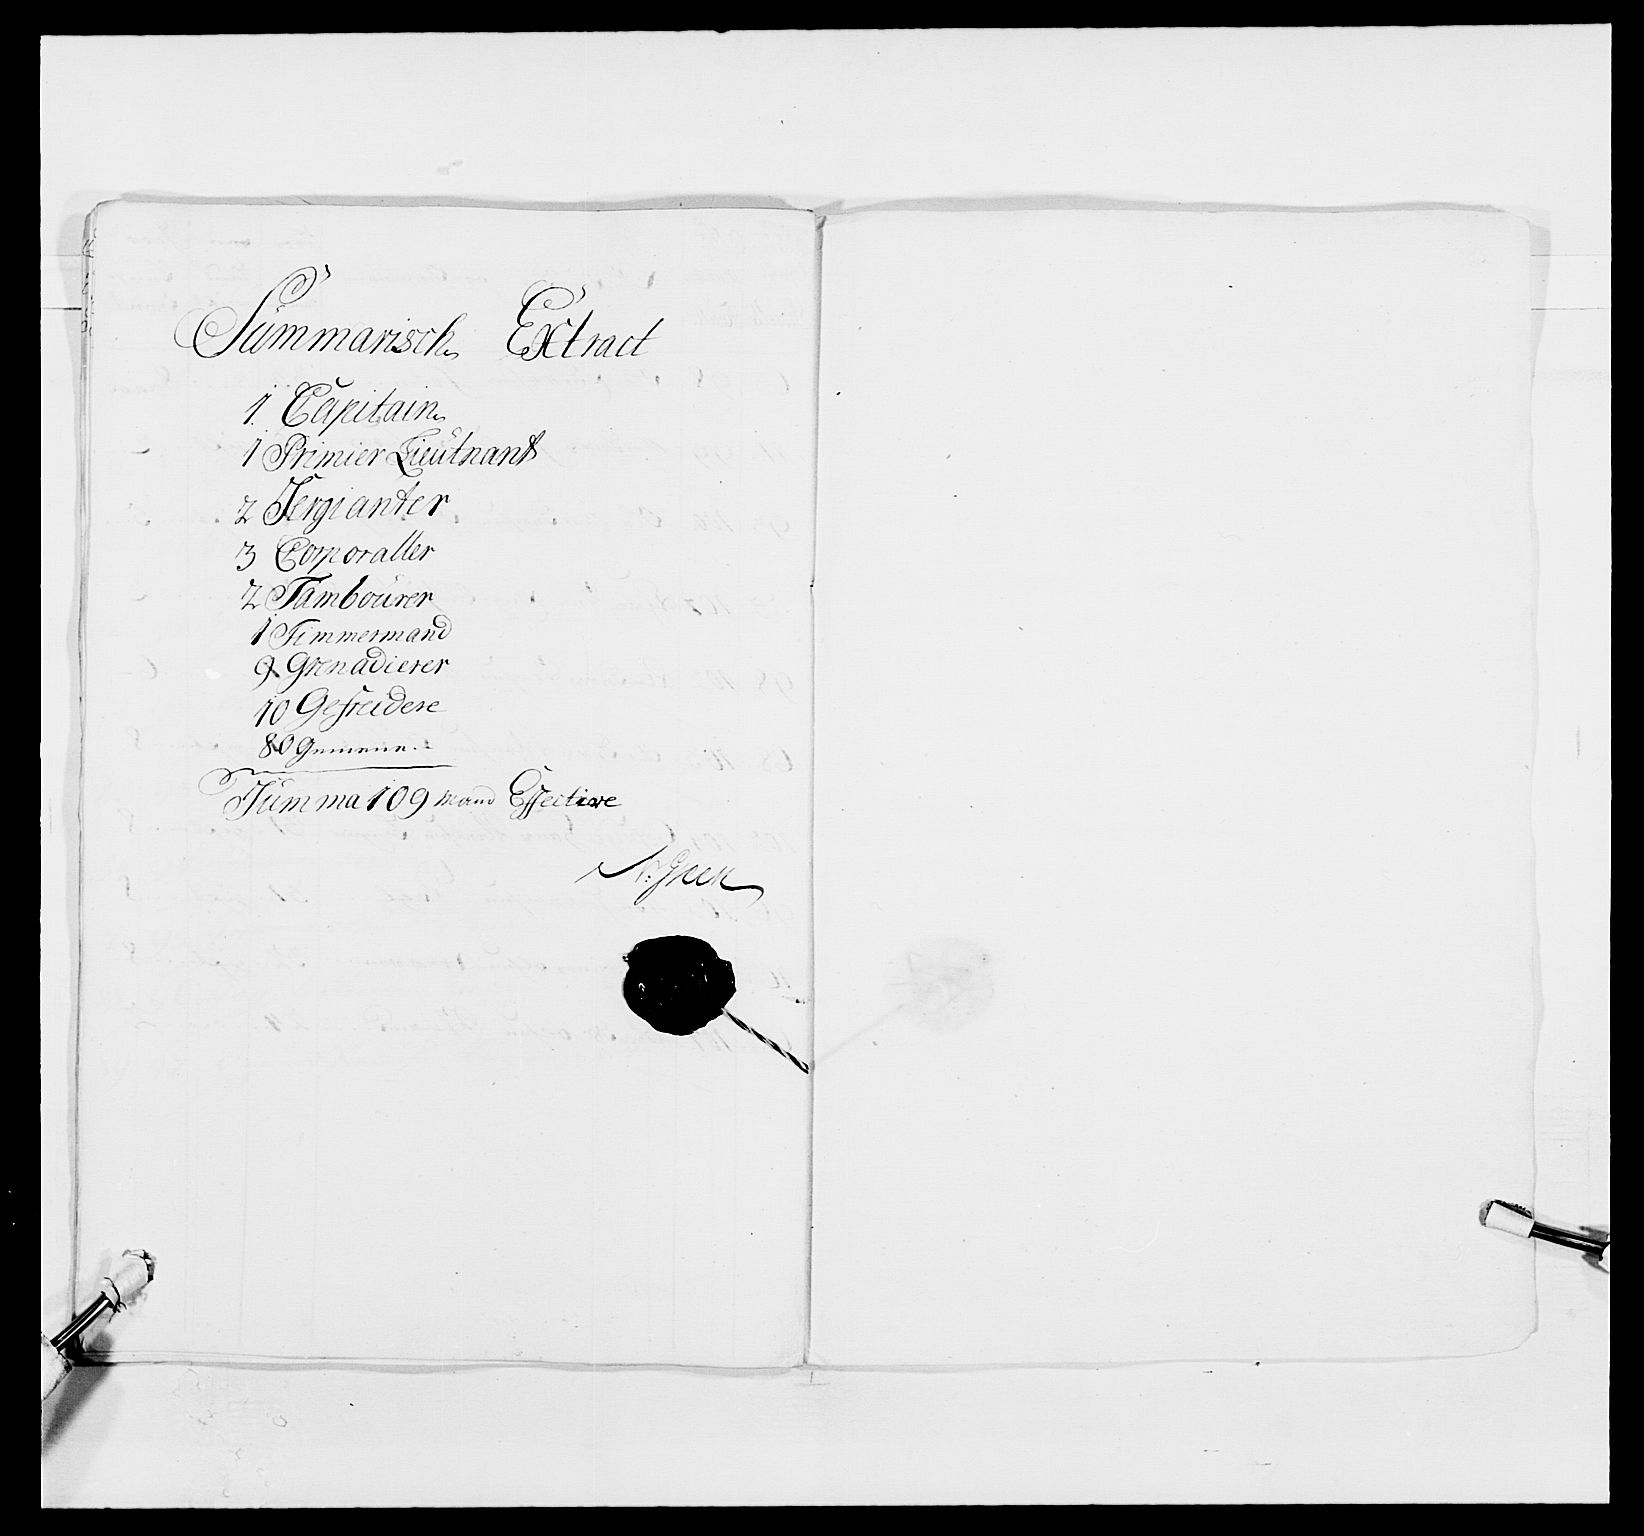 Summarisch Extract
1 Capitain
1 Primier Lieutnant
2 Sergianter
3 Corporaller
2 Tambourer
1 Timmermand
9 Grenadierer
10 Gefreidere
80 Gemene.
Summa 109 Mand Effective